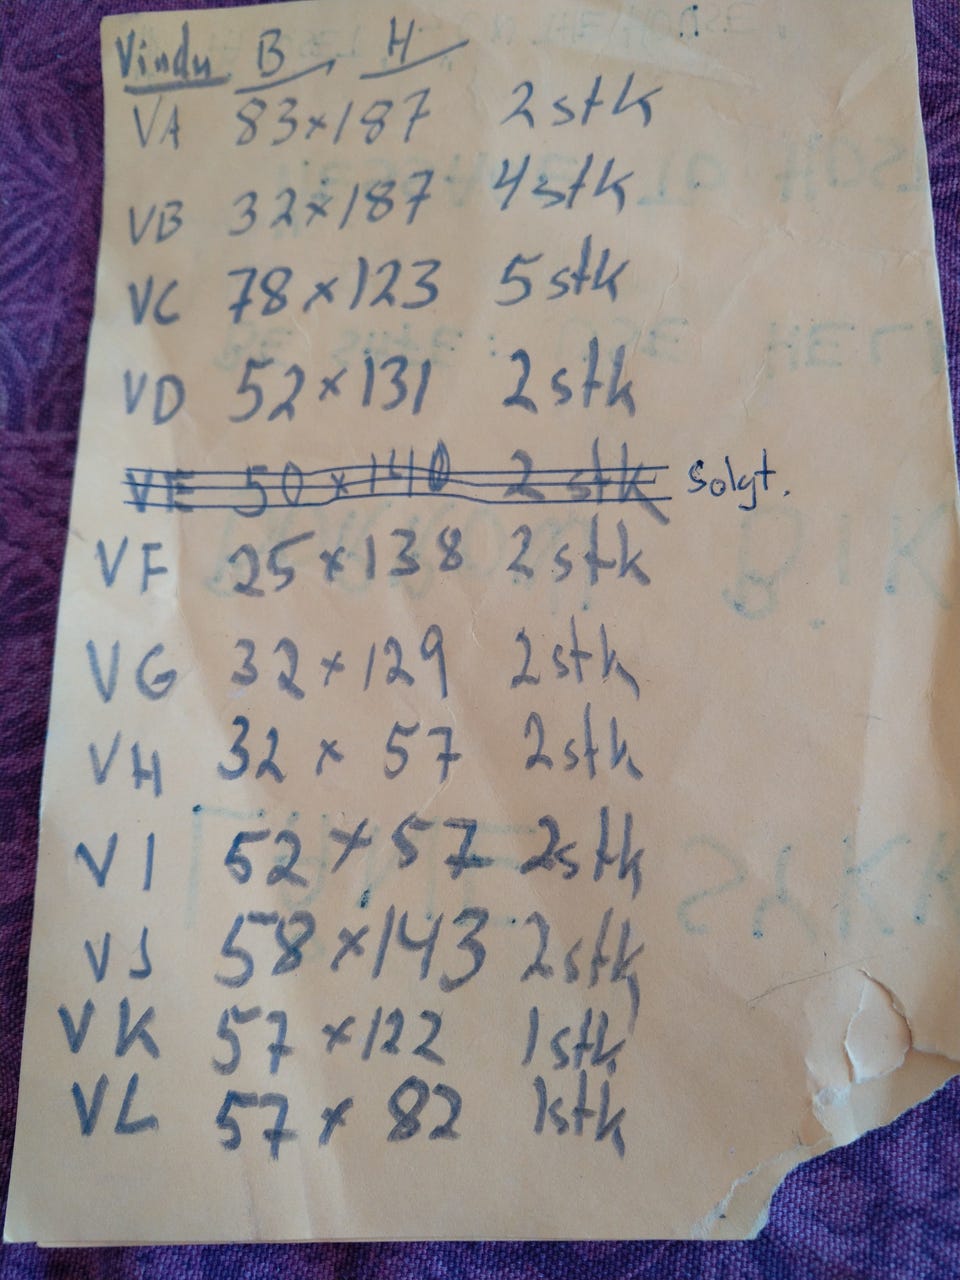 Vindu B H
VA 83x187 2 stk
VB 32x187 4 stk
VC 78x123 5 stk
VD 52x131 2 stk
VE 50x140 2 stk Solgt.
VF 25x138 2 stk
VG 32x129 2 stk
VH 32 x 57 2 stk
VI 52 x 57 2 stk
VJ 58x143 2 stk
VK 57x122 1 stk
VL 57 x 82 1 stk